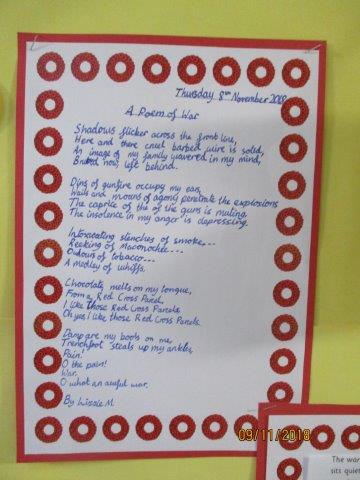 Thursday 8th November 2018
A Poem of War
Shadows flicker across the front line,
Here and there cruel barbed wire is solid,
An image of my family wavered in my mind,
now, left behind.
Dins of gunfire occupy my ear,
Wails and moans of agony penetrate the explosions
The caprice of the of the guns is muting.
The insolence in my anger is depressing.
Intoxicating stenches of smoke...
Reeking of Maconochie...
Odours of tobacco...
A medley of whiffs.
Chocolate, melts on my tongue,
From a Red Cross Parcel,
I like those Red Cross Parcels
Oh yes I like those Red Cross Parcels.
Damp are my boots on me,
Trenchfoot steals up my ankles,
Pain!
O the pain!
War.
O what an awful war.
By M
09/11/2018
The war
sits quiet